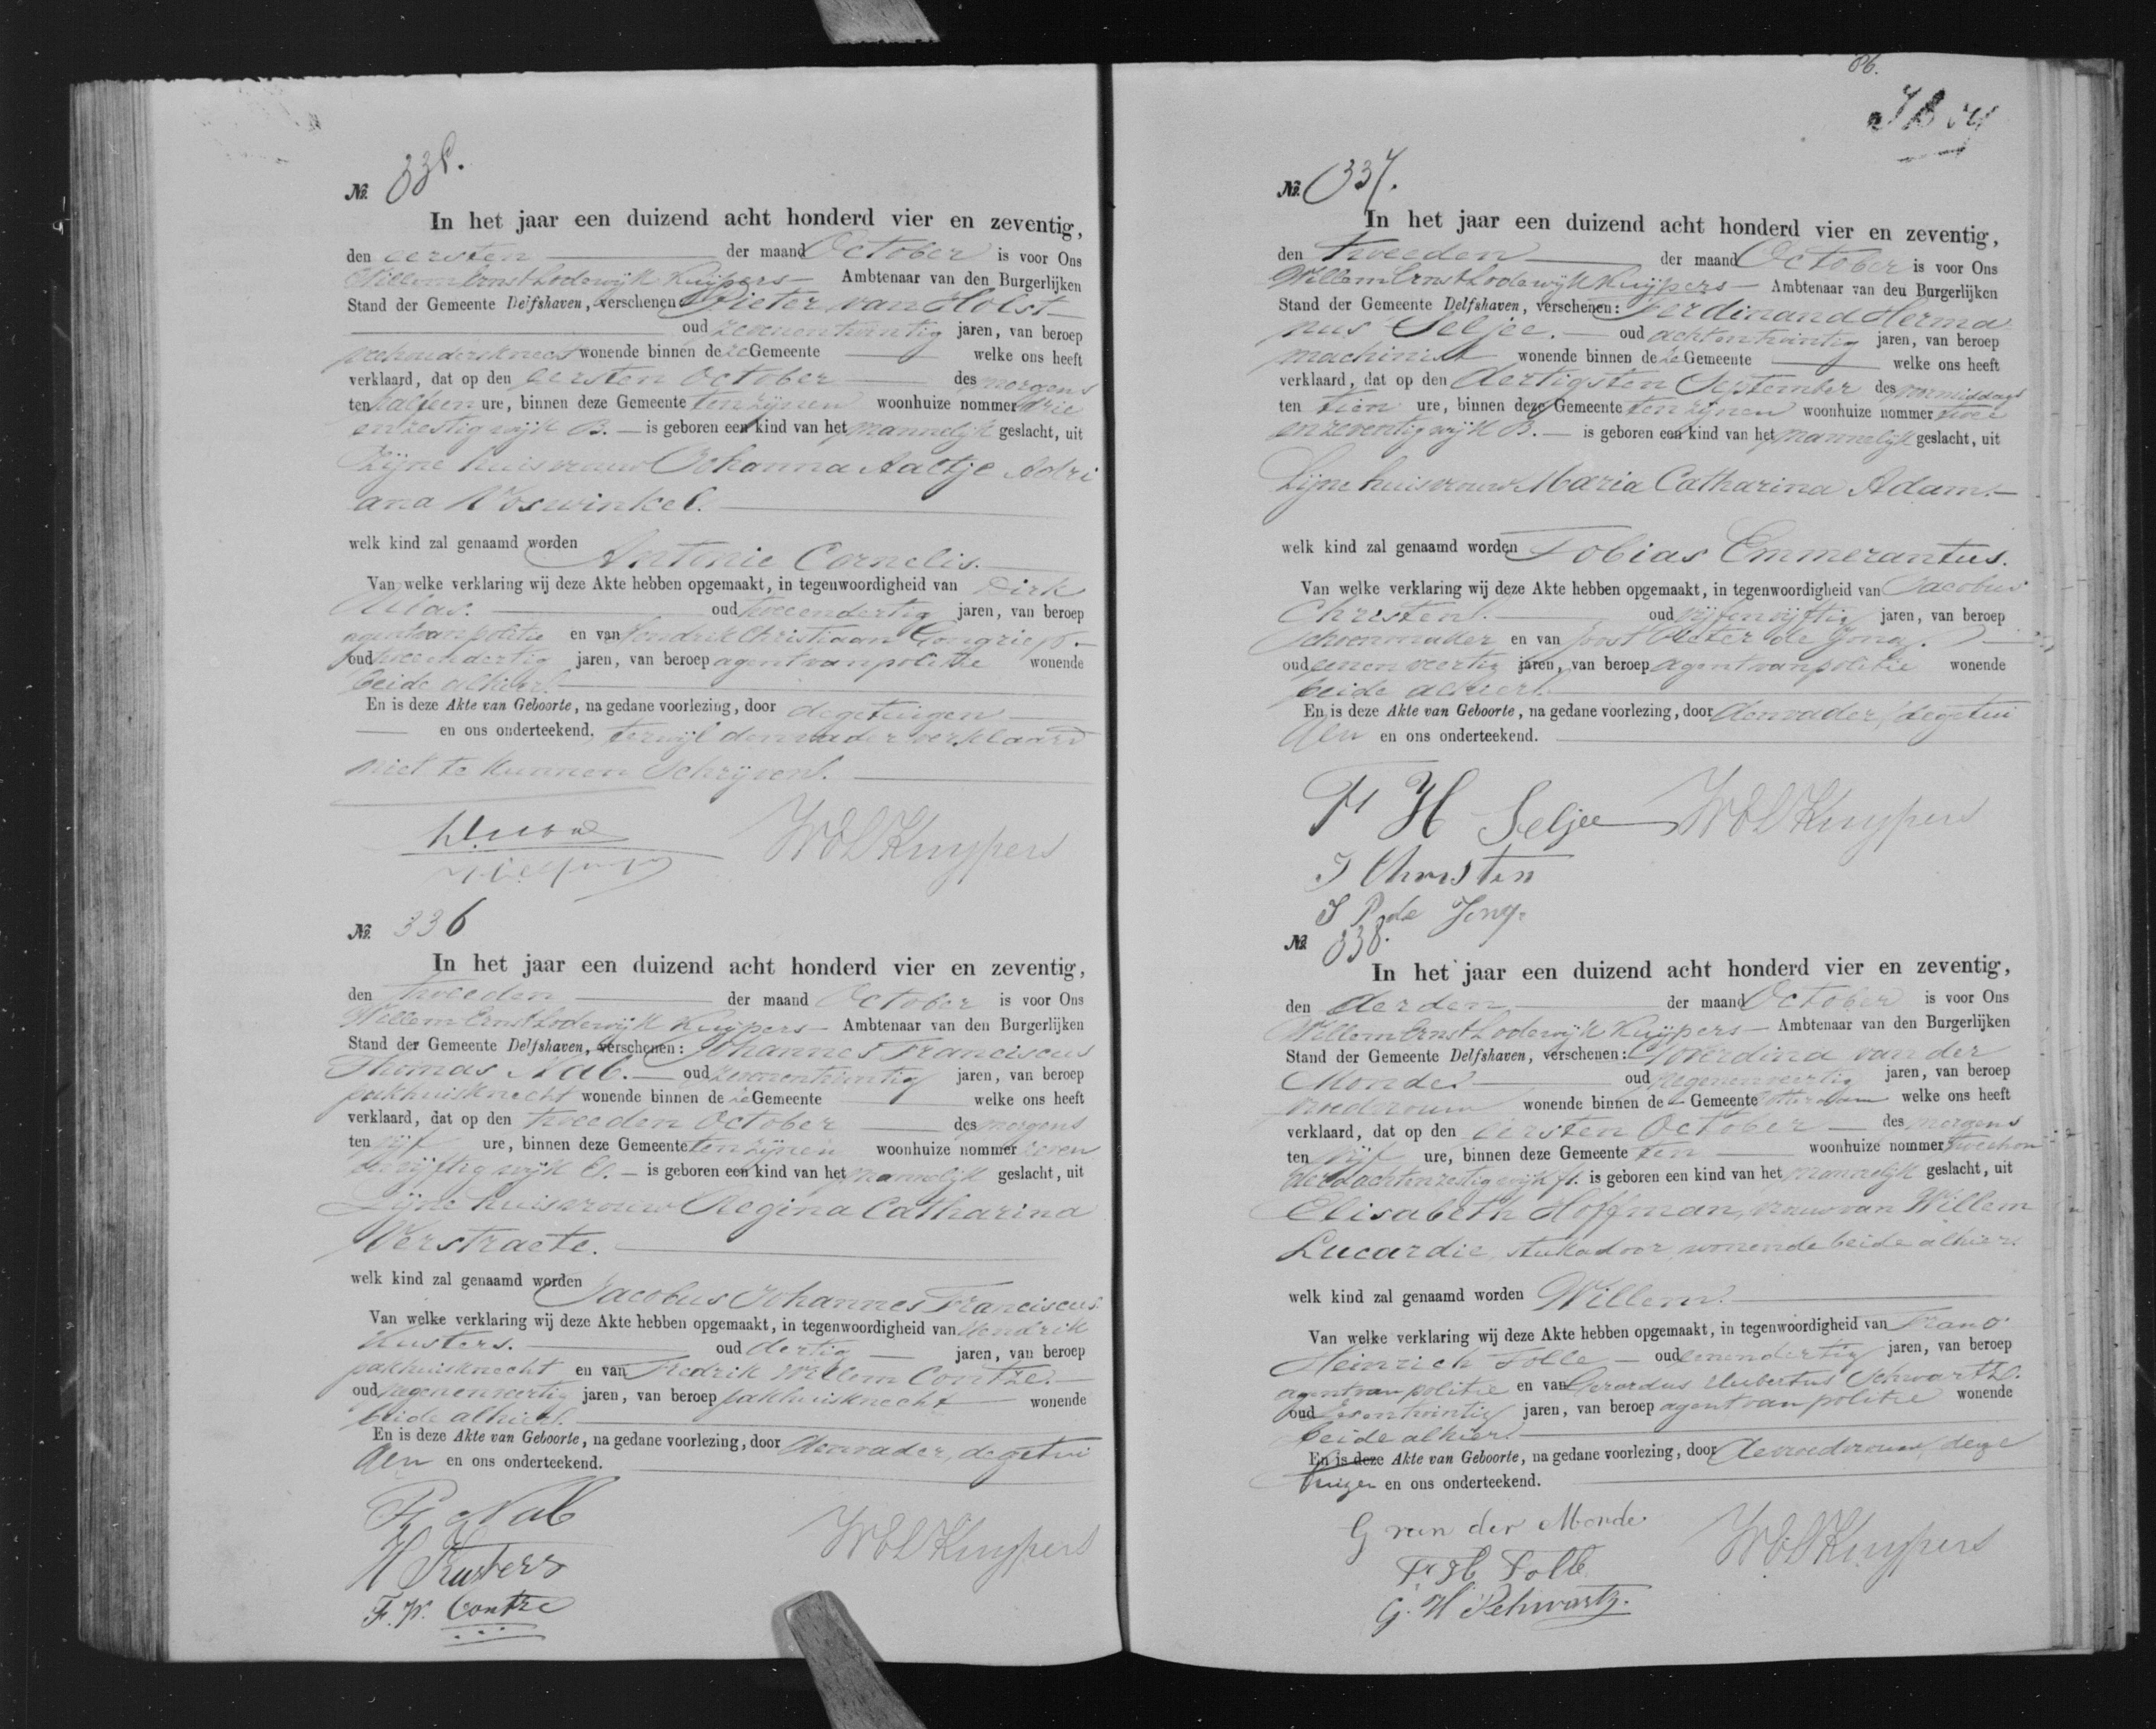 No. 335.
In het jaar een duizend acht honderd vier en zeventig,
den eersten der maand October is voor Ons
Willem Ernst Lodewijk Kuijpers Ambtenaar van den Burgerlijken
Stand der Gemeente Delfshaven, verschenen Pieter van Holst
oud zevenentwintig jaren, van beroep
wonende binnen deze Gemeente welke ons heeft
verklaard, dat op den eersten October des morgens
ten half een ure, binnen deze Gemeente ten zijnen woonhuize nommer drie
en zestig wijk B. is geboren een kind van het mannelijk geslacht, uit
Zijne huisvrouw Johanna Aaltje Adri
ana Voswinkel.
welk kind zal genaamd worden
Antonie Cornelis.
Van welke verklaring wij deze Akte hebben opgemaakt, in tegenwoordigheid van Dirk
oud tweeendertig jaren, van beroep
agent van politie en van Hendrik Christiaan Gongriep.
oud tweeendertig jaren, van beroep agent van politie wonende
beide alhier.
En is deze Akte van Geboorte, na gedane voorlezing, door de getuigen
en ons onderteekend, terwijl den vader verklaard
niet te kunnen schrijven.
WEL Kuypers
No. 336
In het jaar een duizend acht honderd vier en zeventig,
den tweeden der maand October is voor Ons
Willem Ernst Lodewijk Kuijpers Ambtenaar van den Burgerlijken
Stand der Gemeente Delfshaven, verschenen: Johannes Franciscus
Thomas Nab. oud zevenentwintig jaren, van beroep
pakhuisknecht wonende binnen deze Gemeente welke ons heeft
verklaard, dat op den tweeden October des morgens
ten vijf ure, binnen deze Gemeente ten zijnen woonhuize nommer zeven
en vijftig wijk is geboren een kind van het mannelijk geslacht, uit
Zijne huisvrouw Regina Catharina
Verstraete.
welk kind zal genaamd worden
Jacobus Johannes Franciscus.
Van welke verklaring wij deze Akte hebben opgemaakt, in tegenwoordigheid van Hendrik
Kusters. oud dertig jaren, van beroep
pakhuisknecht en van Fredrik Willem Contze.
oud negenenveertig jaren, van beroep pakhuisknecht wonende
beide alhier.
En is deze Akte van Geboorte, na gedane voorlezing, door den vader, de getui
gen en ons onderteekend.
F Nab
WEL Kuypers
H Kusters
F. W. Contze
86.
No. 337.
In het jaar een duizend acht honderd vier en zeventig,
den tweeden der maand October is voor Ons
Willem Ernst Lodewijk Kuijpers Ambtenaar van den Burgerlijken
Stand der Gemeente Delfshaven, verschenen: Ferdinand Herma
nus Seljee. oud achtentwintig jaren, van beroep
machinist wonende binnen deze Gemeente welke ons heeft
verklaard, dat op den dertigsten September des voormiddags
ten tien ure, binnen deze Gemeente ten zijnen woonhuize nommer twee
en zeventig wijk B. is geboren een kind van het mannelijk geslacht, uit
Zijne huisvrouw Maria Catharina Adam.
welk kind zal genaamd worden Tobias Emmerantus.
Van welke verklaring wij deze Akte hebben opgemaakt, in tegenwoordigheid van Jacobus
Christen. oud vijfenvijftig jaren, van beroep
Schoenmaker en van Joost Pieter de Jong.
oud eenenveertig jaren, van beroep agent van politie wonende
beide alhier.
En is deze Akte van Geboorte, na gedane voorlezing, door den vader, de getui
gen en ons onderteekend.
F H Seljee WEL Kuypers
J Christen
J P de Jong
No. 338.
In het jaar een duizend acht honderd vier en zeventig,
den derden der maand October is voor Ons
Willem Ernst Lodewijk Kuijpers Ambtenaar van den Burgerlijken
Stand der Gemeente Delfshaven, verschenen: Goverdina van der
Monde oud negenenveertig jaren, van beroep
vroedvrouw wonende binnen de Gemeente Rotterdam welke ons heeft
verklaard, dat op den eersten October des morgens
ten vijf ure, binnen deze Gemeente ten woonhuize nommer tweehon
derd achtenzestig wijk A. is geboren een kind van het mannelijk geslacht, uit
Elisabeth Hoffman, vrouw van Willem
Lucardie, stukadoor, wonende beide alhier.
welk kind zal genaamd worden Willem.
Van welke verklaring wij deze Akte hebben opgemaakt, in tegenwoordigheid van Frans
Heinrich Folle oud eenendertig jaren, van beroep
agent van politie en van Gerardus Hubertus Schwartz.
oud zesentwintig jaren, van beroep agent van politie wonende
beide alhier.
En is deze Akte van Geboorte, na gedane voorlezing, door de vroedvrouw, de ge
tuigen en ons onderteekend.
G van der Monde
WEL Kuypers
F H Folle
G. H Schwartz.